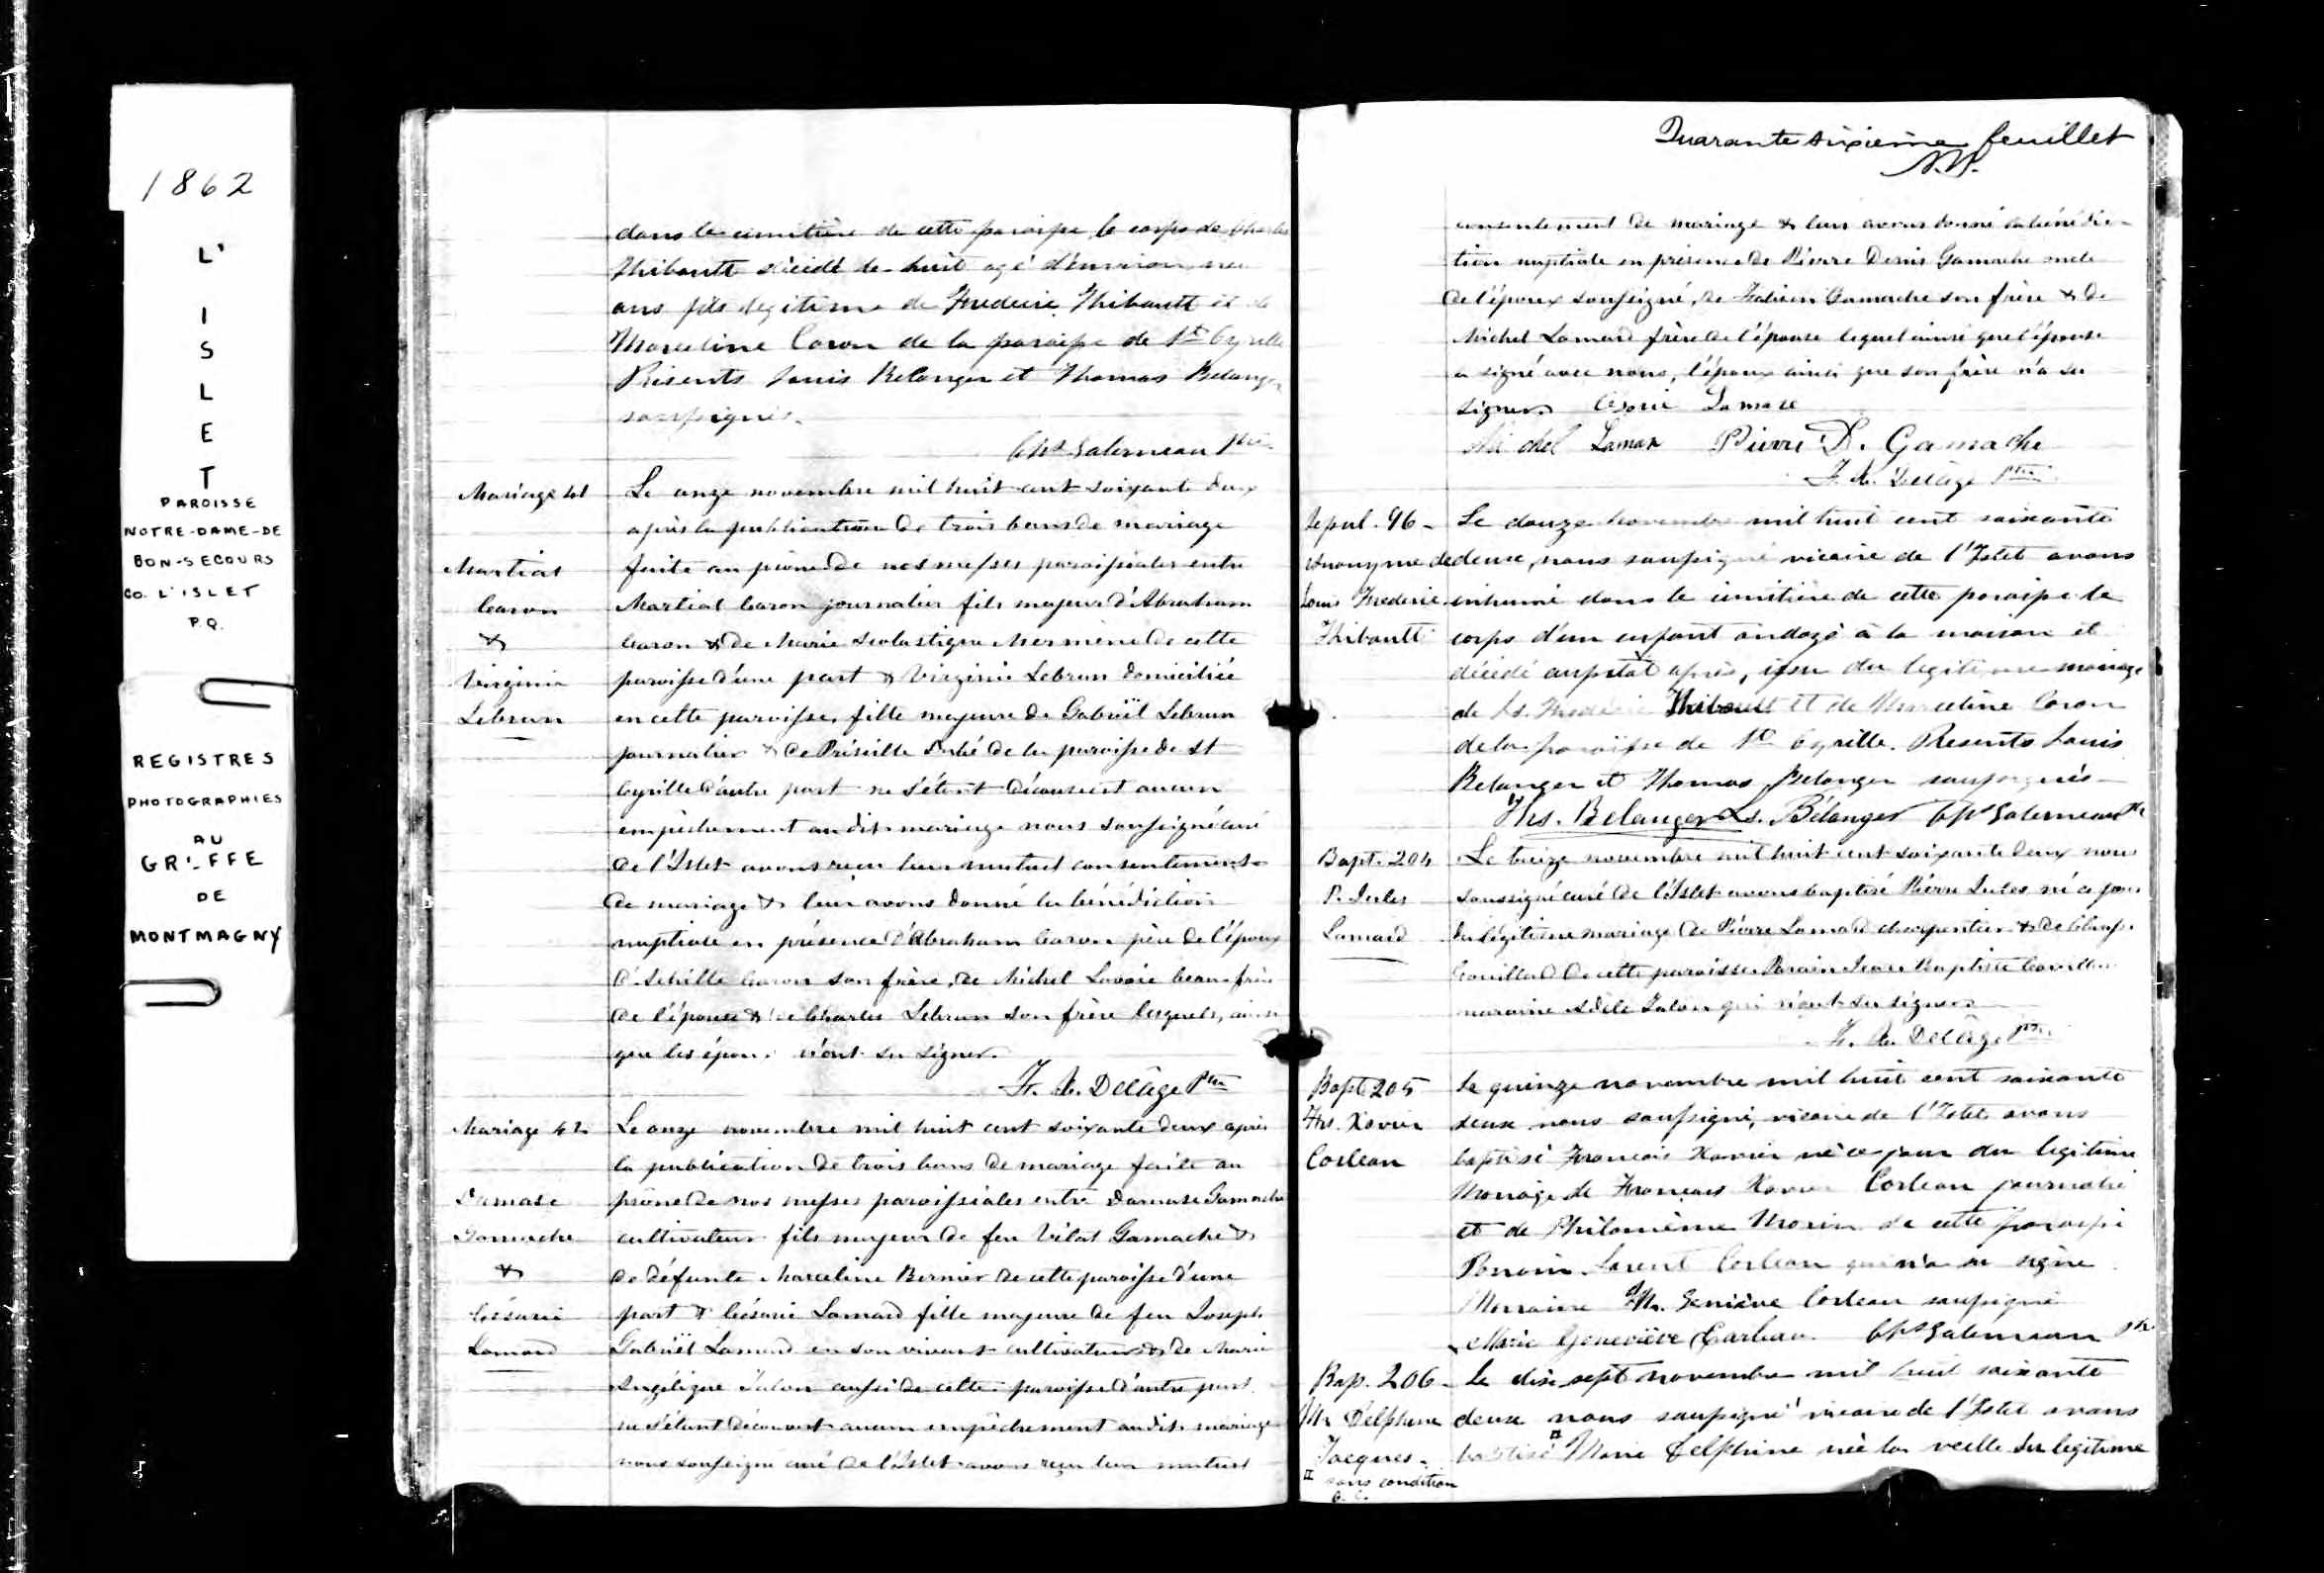 1862
L'
I
S
L
E
T
PAROISSE
NOTRE-DAME-DE
BON-SECOURS
CO. L'ISLET
P.Q.
REGISTRES
PHOTOGRAPHIES
AU
GREFFE
DE
MONTMAGNY
dans le cimitière de cette paroisse le corps de Charles
Thibault décédé le huit agé d'environ
ans fils legitime de Frederic Thibault et de
Marceline Caron de la paroisse de St Cyrille
Présents Louis Belanger et Thomas Belanger
soussignés.
Chs Galerneau Ptre
Mariage 41
Martial
Caron
&
Virginie
Lebrun
Le onze novembre mil huit cent soixante deux
après la publication de trois bans de mariage
faite au prône de nos messes paroissiales entre
Martial Caron journalier fils majeur d'Abraham
Caron & de Marie Scolastique de cette
paroisse d'une part & Virginie Lebrun domiciliée
en cette paroisse, fille majeure de Gabriël Lebrun
journalier & de Priscille de la paroisse de St
Cyrille d'autre part ne s'étant découvert aucun
empêchement au dit mariage nous soussigné curé
de l'Islet avons reçu leur mutuel consentement
de mariage & leur avons donné la bénédiction
nuptiale en présence d'Abraham Caron père de l'époux
Caron son frère, de Michel Lavoie beau-frère
de l'épouse & de Charles Lebrun son frère lesquels, ainsi
que les époux n'ont su signer.
F. X. Delâge Ptre
Mariage 42
Damase
Gamache
&
Césarie
Lamard
Le onze novembre mil huit cent soixante deux après
la publication de trois bans de mariage faite au
prône de nos messes paroissiales entre Damase Gamache
cultivateur fils majeur de feu Vital Gamache &
de défunte Marceline Bernier de cette paroisse d'une
part & Césarie Lamard fille majeure de feu Joseph
Gabriël Lamard en son vivant cultivateur & de Marie
Angélique aussi de cette paroisse d'autre part
ne s'étant découvert aucun empêchement au dit mariage
nous soussigné curé de l'Islet avons reçu leur mutuel
Quarante sixième feuillet
consentement de mariage & leur avons donné la bénédic-
tion nuptiale en présence de Pierre Denis Gamache oncle
de l'époux soussigné, de Fabien Gamache son frère & de
Michel Lamard frère de l'épouse lequel ainsi que l'épouse
a signé avec nous, l'époux ainsi que son frère n'a su
signer. Césarie Lamare
Michel Lamar Pierre D. Gamache
F. X. Delâge Ptre
Sepul. 96
Anonyme de
Louis Frederic
Thibault
Le douze novembre mil huit cent soixante
deux, nous soussigné vicaire de l'Islet avons
inhumé dans le cimitière de cette paroisse le
corps d'un enfant ondoyé à la maison et
décédé aussitôt après, issu du legitime mariage
de Ls. Frederic Thibault et de Marceline Caron
de la paroisse de St Cyrille. Presents Louis
Belanger et Thomas Belanger soussignés
Ths. Belanger Ls. Bélanger Chs Galerneau Ptre
Bapt. 204
P. Jules
Lamard
Le treize novembre mil huit cent soixante deux nous
soussigné curé de l'Islet avons baptisé Pierre Jules né ce jour
du légitime mariage de Pierre Lamard charpentier & de
Couillard de cette paroisse. Parain Jean Baptiste Couillard
maraine Adèle qui n'ont su signer
F. X. Delâge Ptre
Bapt 205
Frs. Xavier
Corleau
Le quinze novembre mil huit cent soixante
deux nous soussigné, vicaire de l'Islet avons
baptisé François Xavier né ce jour du legitime
Mariage de François Xavier Corleau journalier
et de Philomème Morin de cette paroisse
Parrain Laurent Corleau qui n'a su signé
Marraine M. Geniève Corleau soussigné
Marie Geneviève Carleau Chs Galerneau Ptre
Bap. 206
M. Delphine
Jacques
sous condition
Le dix sept novembre mil huit soixante
deux nous soussigné vicaire de l'Islet avons
baptisé Marie Delphine née la veille du legitime